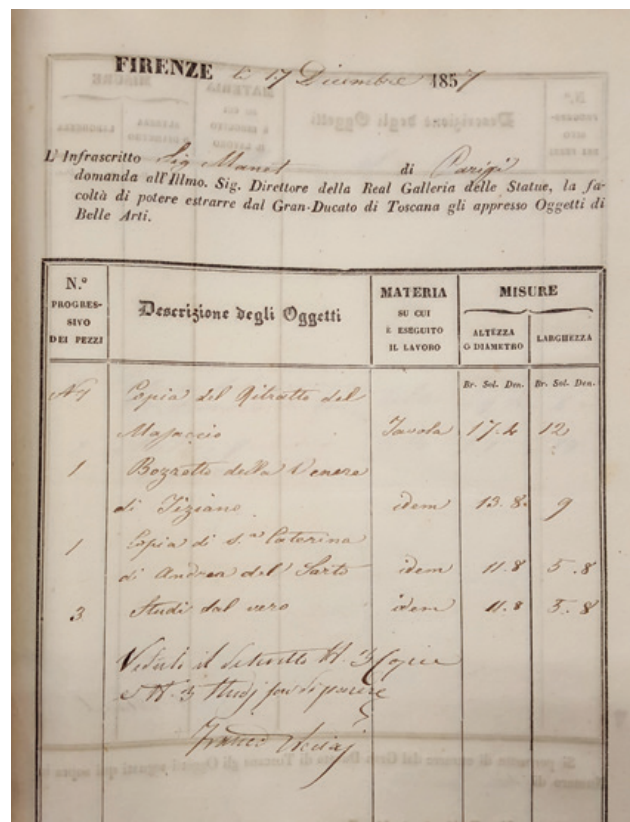 FIRENZE li 17 Dicembre 1857
L'Infrascritto Sig Manet di Parigi
domanda all'Illmo. Sig. Direttore della Real Galleria delle Statue, la fa-
coltà di potere estrarre dal Gran-Ducato di Toscana gli appresso Oggetti di
Belle Arti.
N.º PROGRES-SIVO DEI PEZZI
Descrizione degli Oggetti
MATERIA SU CUI È ESEGUITO IL LAVORO
MISURE
ALTEZZA O DIAMETRO
LARGHEZZA
Br. Sol. Den. Br. Sol. Den.
Nº 1 Copia del Ritratto del
Masaccio Tavola 17.4 12
1 Bozzetto della Venere
di Tiziano idem 13.8. 9
1 Copia di S.ª Caterina
di Andrea del Sarto idem 11.8 5.8
3 Studi dal vero idem 11.8 5.8
Veduti il N. 3 Copie
e N. 3 Studj